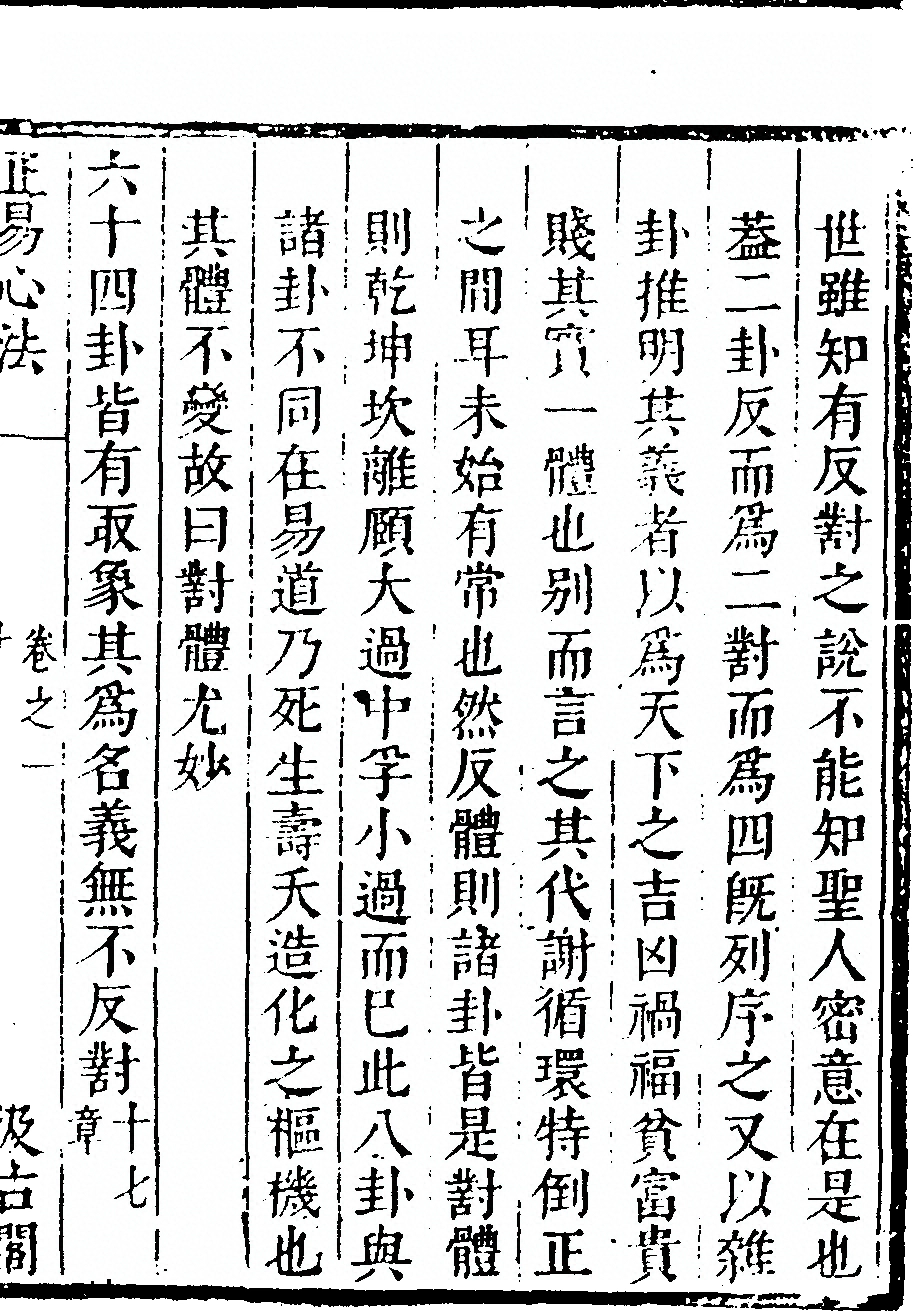 世雖知有反對之說不能知聖人密意在是也
葢二卦反而爲二對而爲四旣列序之又以雜
卦推明其義者以爲天下之吉凶禍福貧富貴
賤其實一體也别而言之其代謝循環特倒正
之間耳未始有常也然反體則諸卦皆是對體
則乾坤坎離頤大過中孚小過而巳此八卦與
諸卦不同在易道乃死生壽夭造化之樞機也
其體不變故曰對體尤妙
六十四卦皆有取象其爲名義無不反對十七
章
正易心法
卷之一
汲古閣